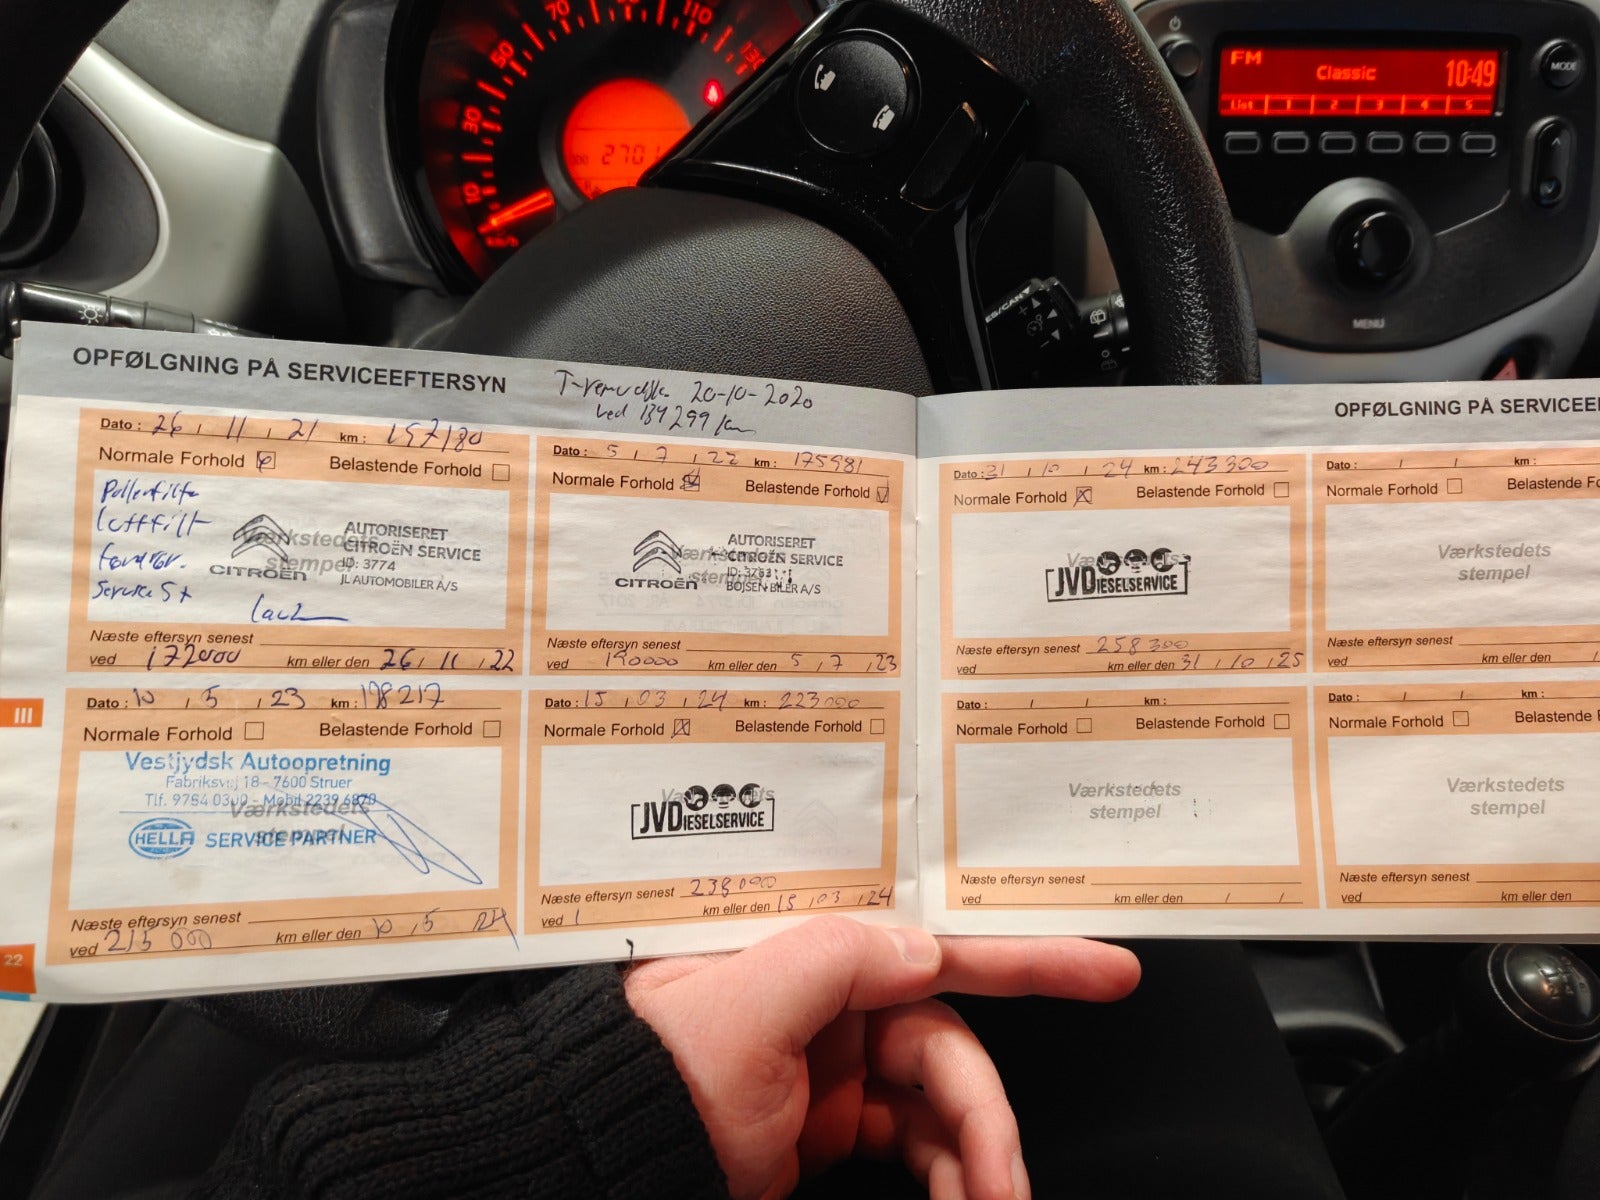 70
110
50
130
30
10
km/h
2701
FM
Classic
10:49
List 1 2 3 4 5
MODE
MENU
OPFØLGNING PÅ SERVICEEFTERSYN
20-10-2020
ved 134299 km
Dato : 26 / 11 / 21 km : 157180
Normale Forhold
Belastende Forhold
Pollenfilter
Luftfilt
Service St
Værkstedets
stempel
CITROËN
AUTORISERET
CITROËN SERVICE
ID: 3774
JL AUTOMOBILER A/S
Næste eftersyn senest
ved 172000 km eller den 26 / 11 / 22
Dato : 5 / 7 / 22 km : 175981
Normale Forhold
Belastende Forhold
Værkstedets
stempel
CITROËN
AUTORISERET
CITROËN SERVICE
BOJSEN BILER A/S
Næste eftersyn senest
ved 190000 km eller den 5 / 7 / 23
Dato : 10 / 5 / 23 km : 198217
Normale Forhold
Belastende Forhold
Vestjydsk Autoopretning
Fabriksvej 18 - 7600 Struer
Tlf. 9784 0300 - Mobil 2239 6870
Værkstedets
stempel
HELLA SERVICE PARTNER
Næste eftersyn senest
ved 215 000 km eller den 10 / 5 24
Dato : 15 / 03 / 24 km : 223000
Normale Forhold
Belastende Forhold
Værkstedets
JVDIESELSERVICE
Næste eftersyn senest 238000
ved km eller den 15 / 03 / 24
III
22
OPFØLGNING PÅ SERVICEE
Dato : 31 / 10 / 24 km : 243300
Normale Forhold
Belastende Forhold
JVDIESELSERVICE
Næste eftersyn senest 258300
ved km eller den 31 / 10 / 25
Dato : / / km :
Normale Forhold
Belastende
Værkstedets
stempel
Næste eftersyn senest
ved km eller den /
Dato : / / km :
Normale Forhold
Belastende Forhold
Værkstedets
stempel
Næste eftersyn senest
ved km eller den / /
Dato : / / km :
Normale Forhold
Belastende
Værkstedets
stempel
Næste eftersyn senest
ved km eller den